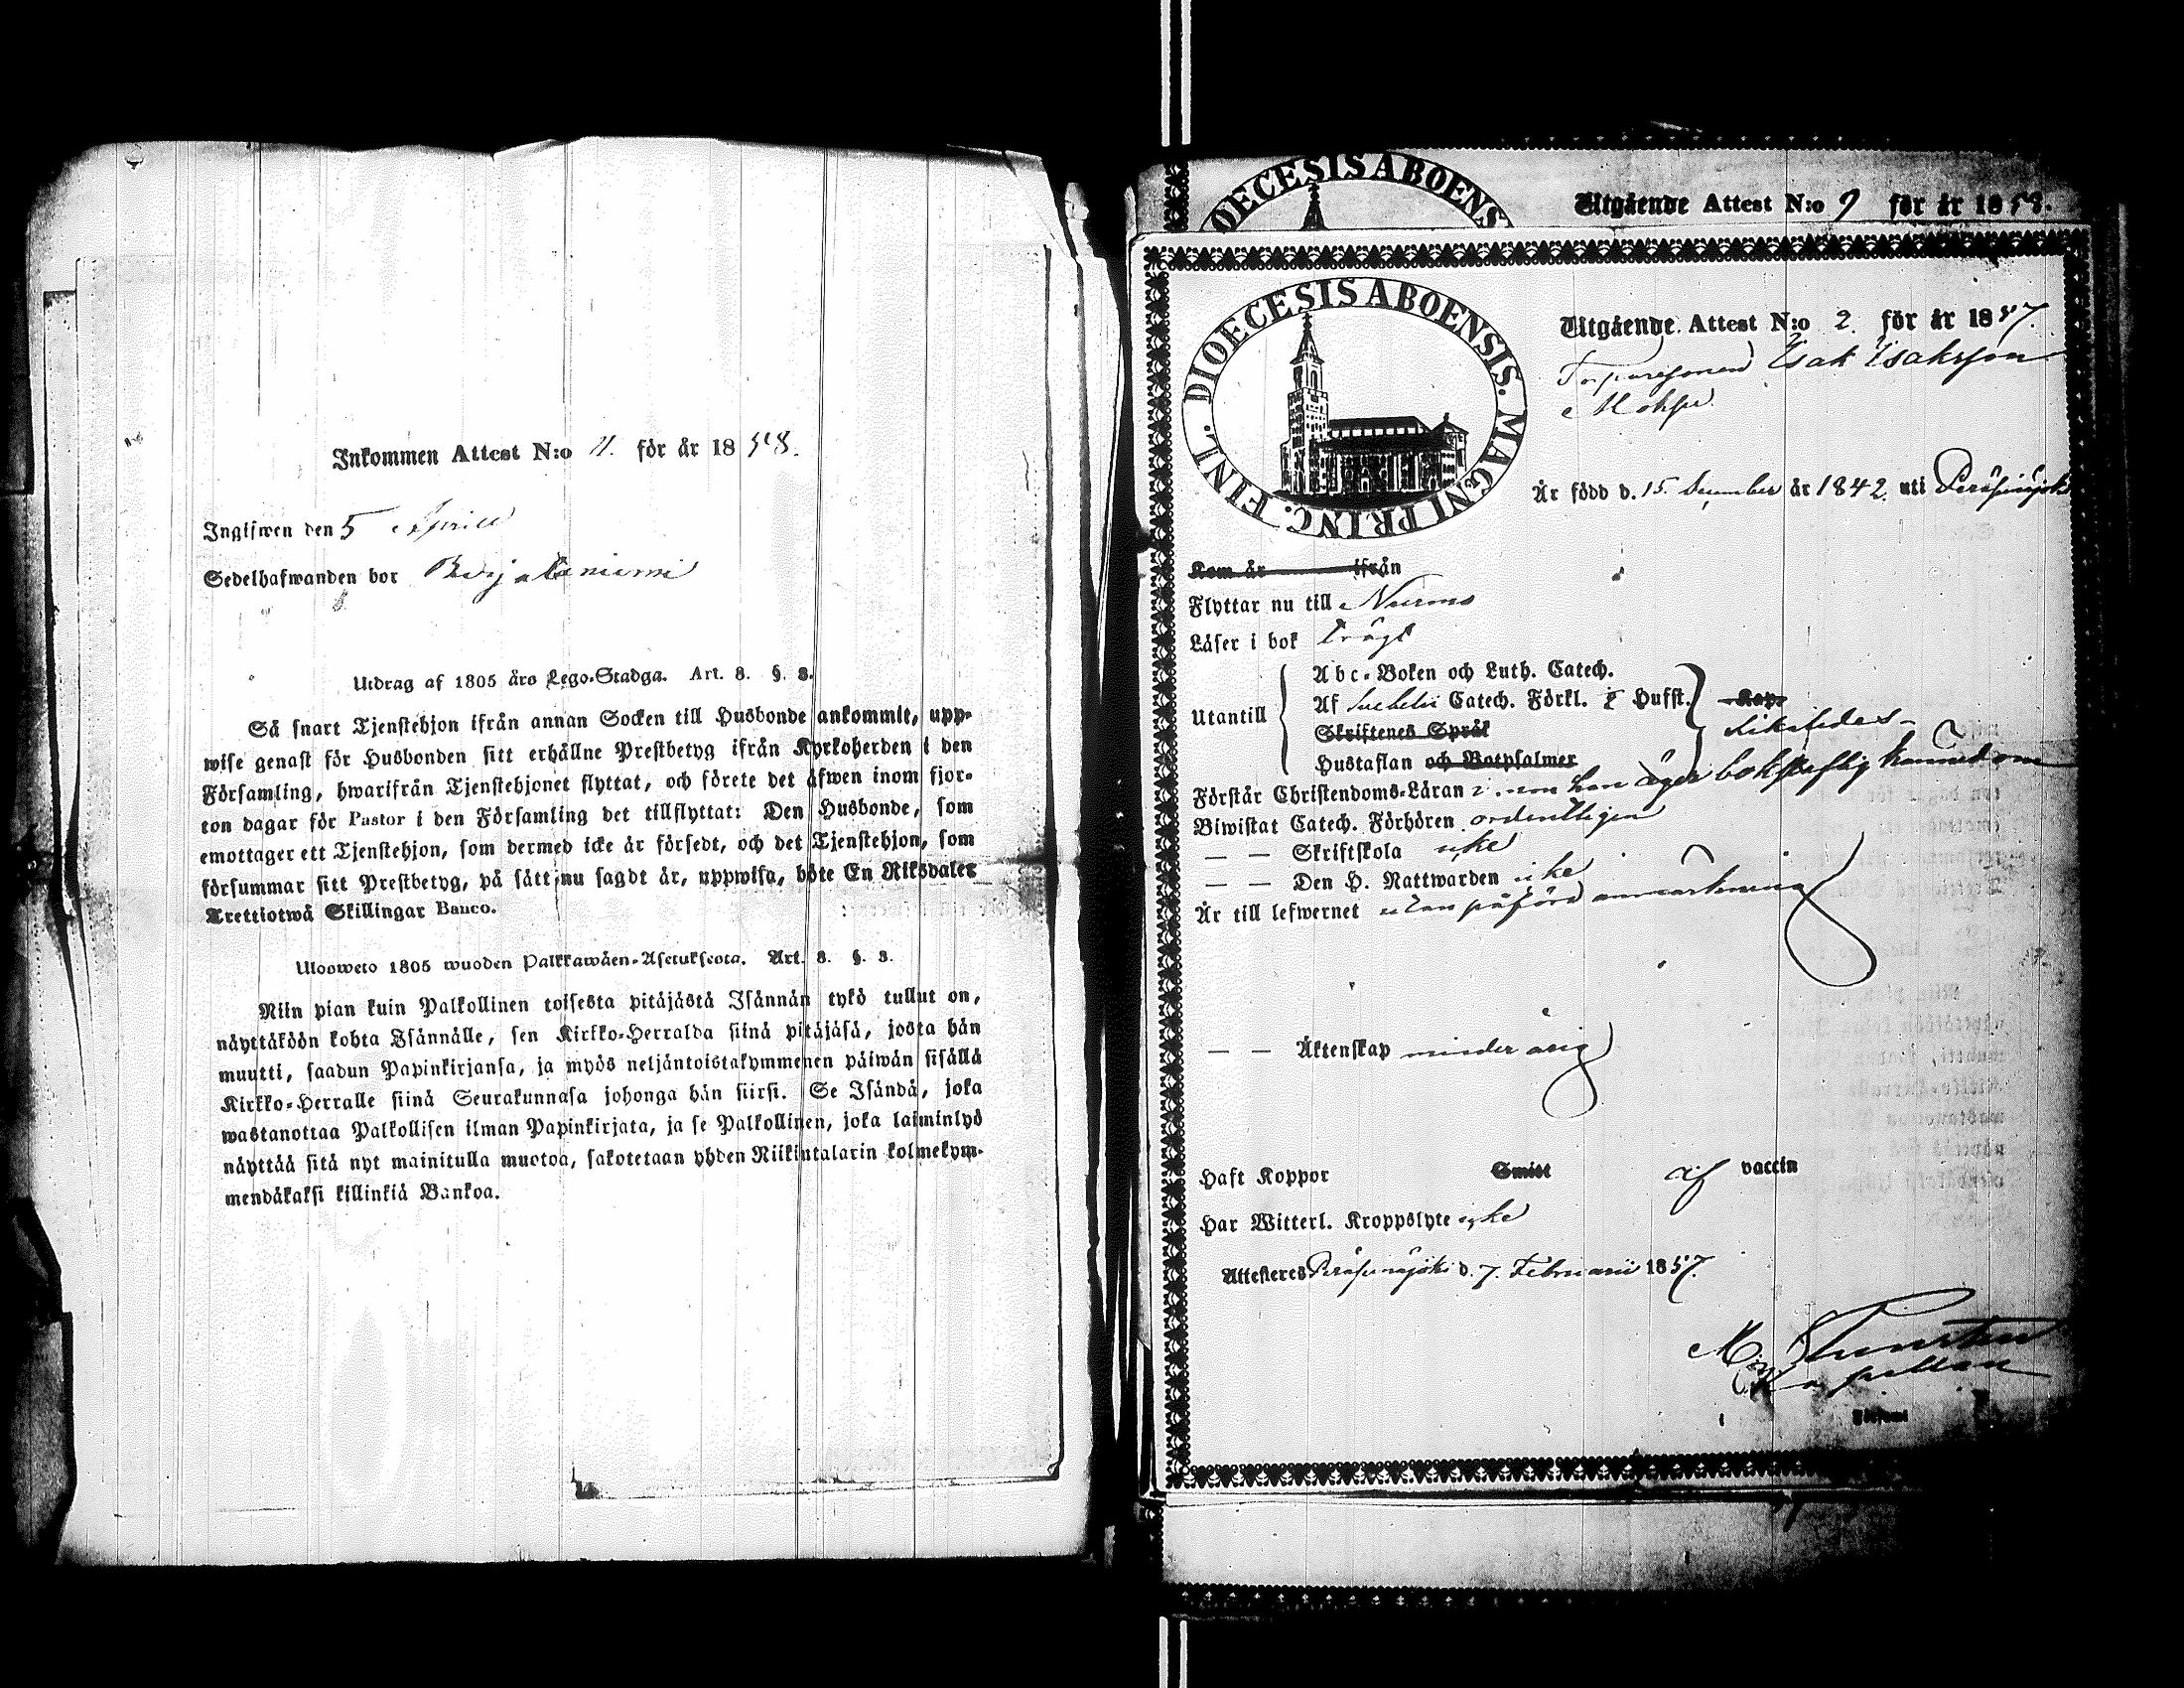 Inkommen Attest N:o 4. för år 1858.
Ingifwen den 5 April
Sedelhafwanden bor
Utdrag af 1805 års Lego-Stadga. Art. 8. §. 3.
Så snart Tjenstehjon ifrån annan Socken till Husbonde ankommit, upp-
wise genast för Husbonden sitt erhållne Prestbetyg ifrån Kyrkoherden i den
Församling, hwarifrån Tjenstehjonet flyttat, och förete det äfwen inom fjor-
ton dagar för Pastor i den Församling det tillflyttat: Den Husbonde, som
emottager ett Tjenstehjon, som dermed icke är försedt, och det Tjenstehjon, som
försummar sitt Prestbetyg, på sätt nu sagdt är, uppwisa, böte En Riksdaler
Trettiotwå Skillingar Banco.
Ulosweto 1805 wuoden Palkkawäen-Asetuksesta. Art. 8. §. 3.
Niin pian kuin Palkollinen toisesta pitäjästä Isännän tykö tullut on,
näyttäköön kohta Isännälle, sen Kirkko-Herralda siinä pitäjäsä, josta hän
muutti, saadun Papinkirjansa, ja myös neljäntoistakymmenen päiwän sisällä
Kirkko-Herralle siinä Seurakunnasa johonga hän siirsi. Se Isändä, joka
wastanottaa Palkollisen ilman Papinkirjata, ja se Palkollinen, joka laiminlyö
näyttää sitä nyt mainitulla muotoa, sakotetaan yhden Riikintalarin kolmekym-
mendäkaksi killinkiä Bankoa.
DIOECESIS ABOENS
Utgående Attest N:o 9 för år 1858.
DIOECESIS ABOENSIS. MAGNI PRINC. FINL.
Utgående Attest N:o 2. för år 1857.
Torparesonen Isak Isaksson
Är född d. 15. December år 1842. uti Peräseinäjoki
Kom år ifrån
Flyttar nu till Nurmo
Läser i bok trögt
Utantill
Abc-Boken och Luth. Catech.
Af Svebelii Catech. Förkl. Hufst.
Kap.
Skriftenes Språk
Hustaflan och Botpsalmer
Förstår Christendoms-Läran han äger bokstaflig kännedom
Biwistat Catech. Förhören ordentligen
— — Skriftskola icke
— — Den H. Nattwarden icke
Är till lefwernet utan påförd anmärkning
— — Äktenskap minderårig
Haft Koppor Smitt af vaccin
Har Witterl. Kroppslyte icke
Attesteres Peräseinäjoki d. 7. Februarii 1857.
Kapellan